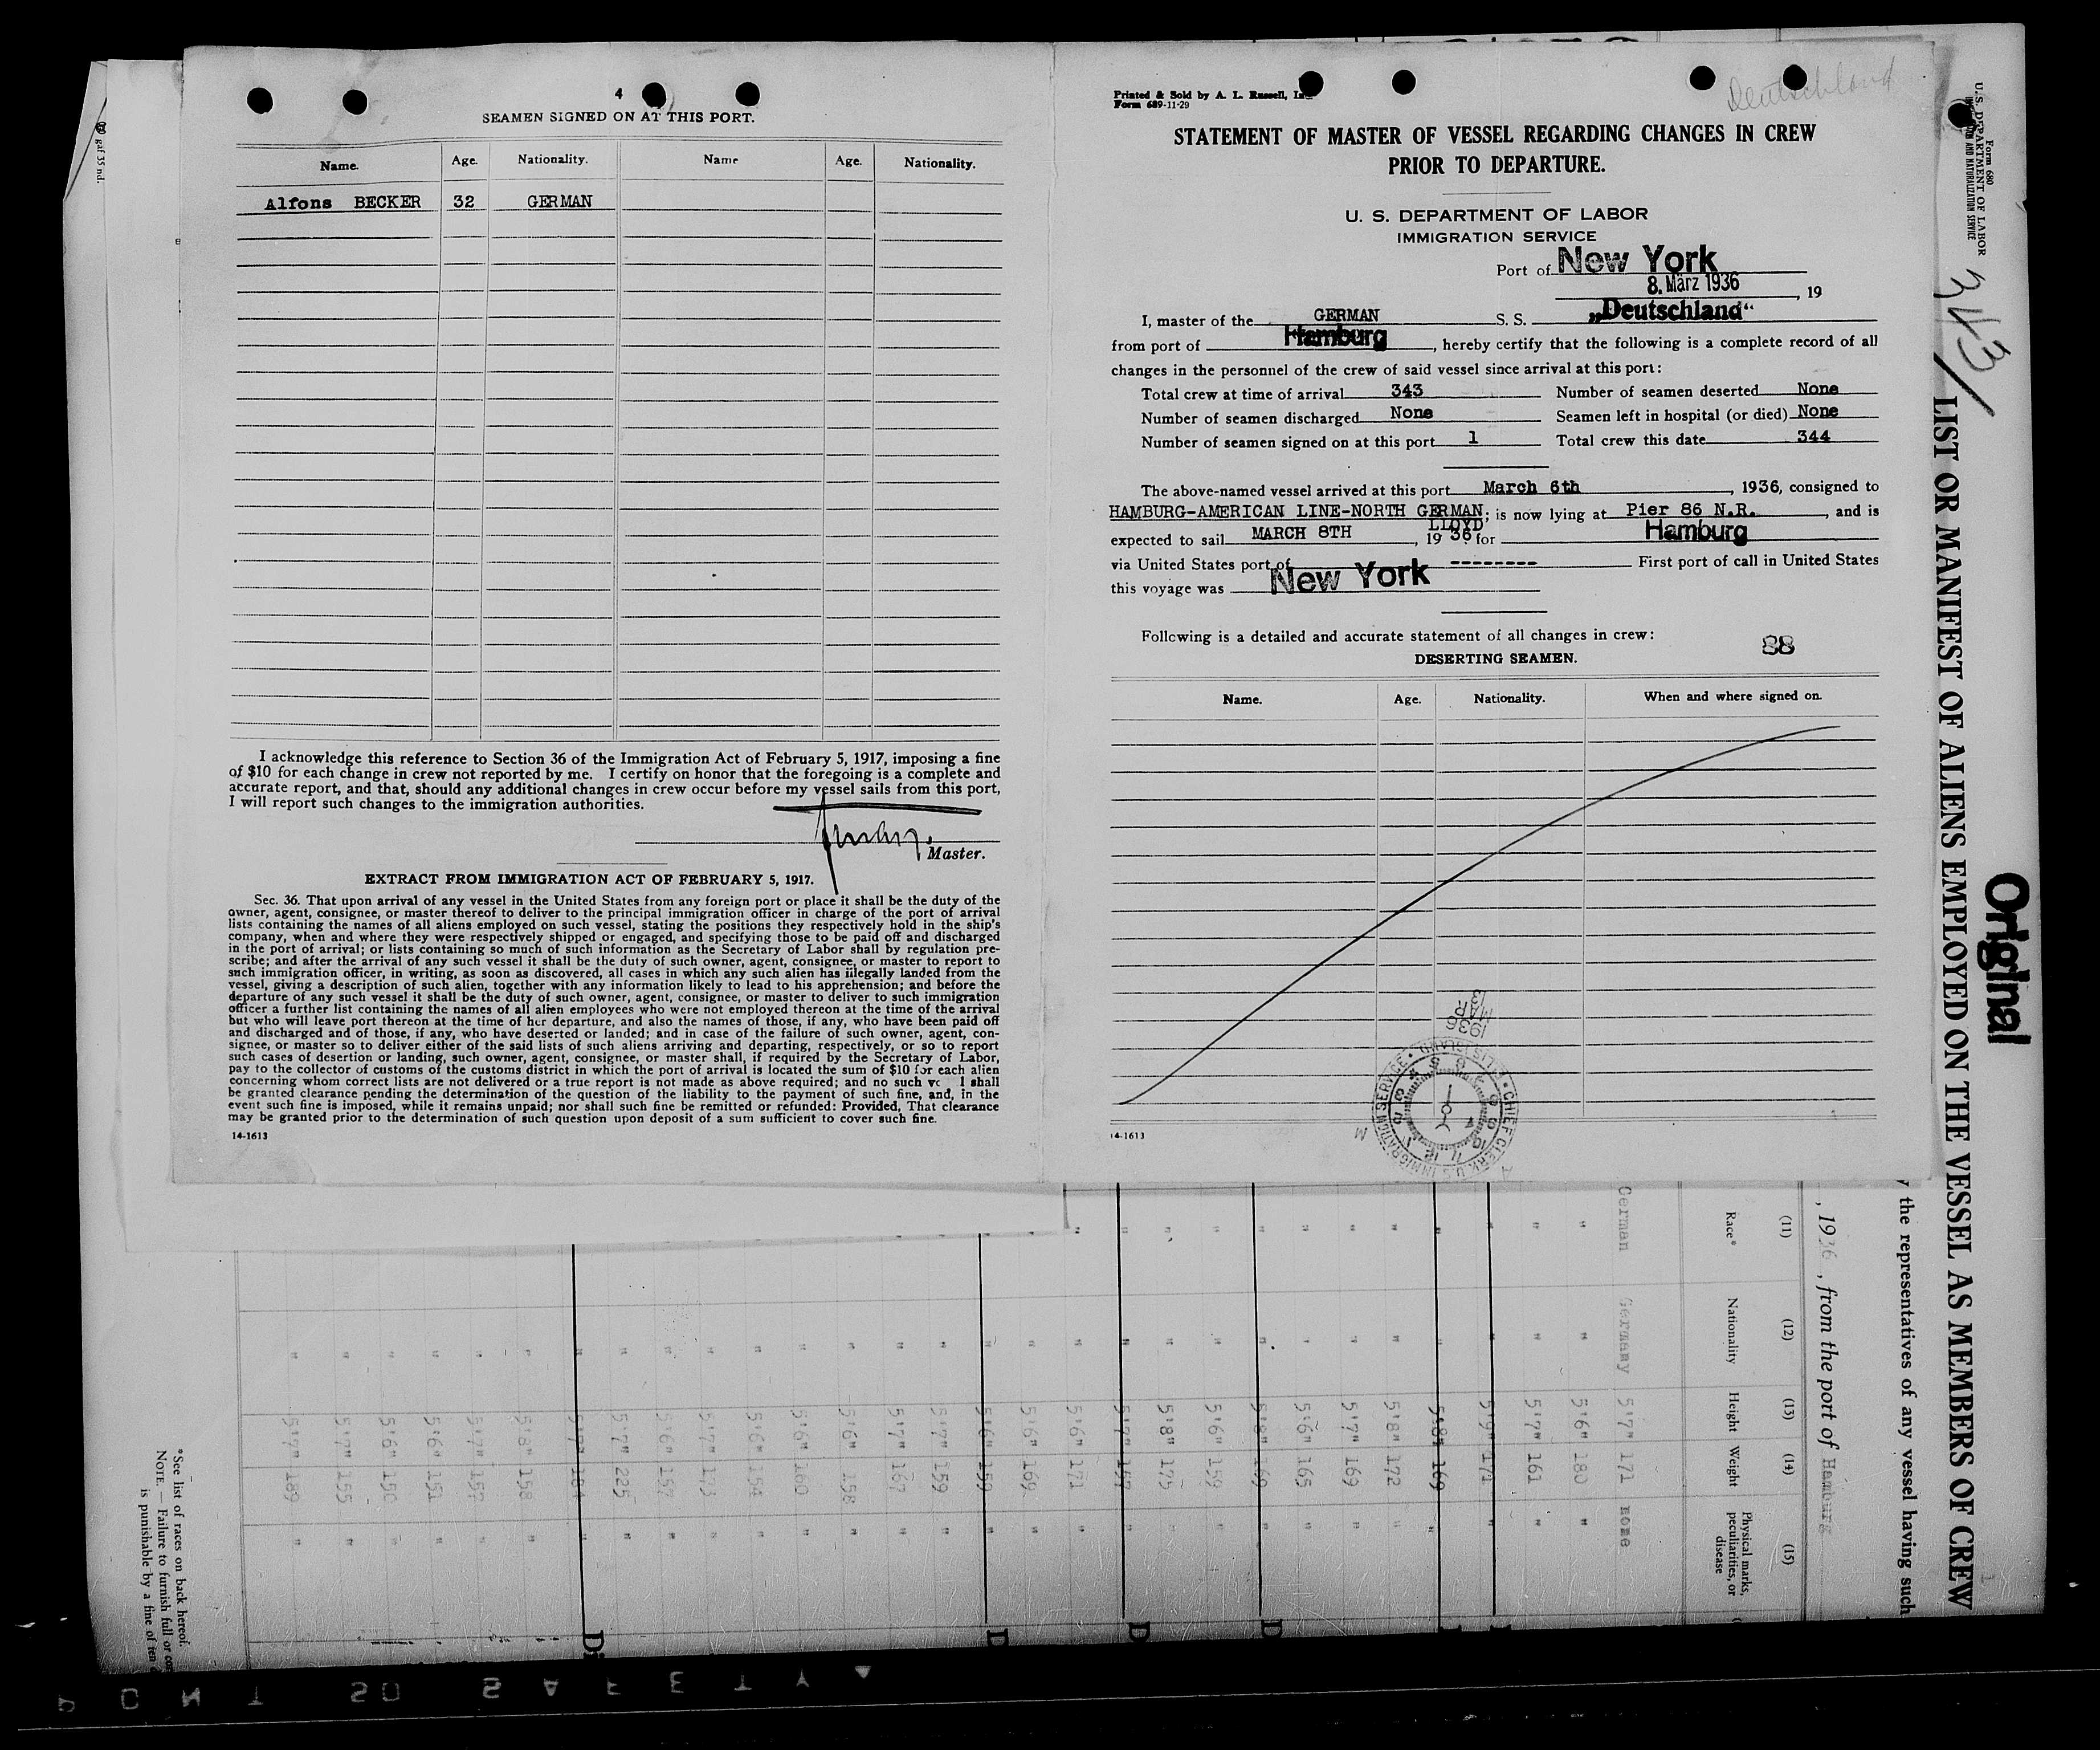 4
SEAMEN SIGNED ON AT THIS PORT.
Name. Age. Nationality. Name Age. Nationality.
Alfons BECKER 32 GERMAN
I acknowledge this reference to Section 36 of the Immigration Act of February 5, 1917, imposing a fine
of $10 for each change in crew not reported by me. I certify on honor that the foregoing is a complete and
accurate report, and that, should any additional changes in crew occur before my vessel sails from this port,
I will report such changes to the immigration authorities.
Master.
EXTRACT FROM IMMIGRATION ACT OF FEBRUARY 5, 1917.
Sec. 36. That upon arrival of any vessel in the United States from any foreign port or place it shall be the duty of the
owner, agent, consignee, or master thereof to deliver to the principal immigration officer in charge of the port of arrival
lists containing the names of all aliens employed on such vessel, stating the positions they respectively hold in the ship's
company, when and where they were respectively shipped or engaged, and specifying those to be paid off and discharged
in the port of arrival; or lists containing so much of such information as the Secretary of Labor shall by regulation pre-
scribe; and after the arrival of any such vessel it shall be the duty of such owner, agent, consignee, or master to report to
such immigration officer, in writing, as soon as discovered, all cases in which any such alien has illegally landed from the
vessel, giving a description of such alien, together with any information likely to lead to his apprehension; and before the
departure of any such vessel it shall be the duty of such owner, agent, consignee, or master to deliver to such immigration
officer a further list containing the names of all alien employees who were not employed thereon at the time of the arrival
but who will leave port thereon at the time of her departure, and also the names of those, if any, who have been paid off
and discharged and of those, if any, who have deserted or landed; and in case of the failure of such owner, agent, con-
signee, or master so to deliver either of the said lists of such aliens arriving and departing, respectively, or so to report
such cases of desertion or landing, such owner, agent, consignee, or master shall, if required by the Secretary of Labor,
pay to the collector of customs of the customs district in which the port of arrival is located the sum of $10 for each alien
concerning whom correct lists are not delivered or a true report is not made as above required; and no such l shall
be granted clearance pending the determination of the question of the liability to the payment of such fine, and, in the
event such fine is imposed, while it remains unpaid; nor shall such fine be remitted or refunded: Provided, That clearance
may be granted prior to the determination of such question upon deposit of a sum sufficient to cover such fine.
14-1613
Deutschland
Printed & Sold by A. L. Russell,
Form 689-11-29
STATEMENT OF MASTER OF VESSEL REGARDING CHANGES IN CREW
PRIOR TO DEPARTURE.
U. S. DEPARTMENT OF LABOR
IMMIGRATION SERVICE
Port of New York
8. März 1936, 19
I, master of the GERMAN S. S. „Deutschland“
from port of Hamburg, hereby certify that the following is a complete record of all
changes in the personnel of the crew of said vessel since arrival at this port:
Total crew at time of arrival 343 Number of seamen deserted None
Number of seamen discharged None Seamen left in hospital (or died) None
Number of seamen signed on at this port 1 Total crew this date 344
The above-named vessel arrived at this port March 6th, 1936, consigned to
HAMBURG-AMERICAN LINE-NORTH GERMAN LLOYD; is now lying at Pier 86 N.R., and is
expected to sail MARCH 8TH, 1936 for Hamburg
via United States port of -------- First port of call in United States
this voyage was New York
Following is a detailed and accurate statement of all changes in crew:
88
DESERTING SEAMEN.
Name. Age. Nationality. When and where signed on.
1936
MAR
13
CHIEF CLERK U.S. IMMIGRATION SERVICE • ELLIS ISLAND •
14-1613
Form 680
U. S. DEPARTMENT OF LABOR
IMMIGRATION AND NATURALIZATION SERVICE
343/
Original
LIST OR MANIFEST OF ALIENS EMPLOYED ON THE VESSEL AS MEMBERS OF CREW
the representatives of any vessel having such
, 1936, from the port of Hamburg
(11) (12) (13) (14) (15)
Race* Nationality Height Weight Physical marks, peculiarities, or disease
German Germany 5'7" 171 none
" " 5'6" 180 "
" " 5'7" 161 "
" " 5'9" 171 "
" " 5'8" 169 "
" " 5'8" 172 "
" " 5'7" 169 "
" " 5'6" 165 "
" " 5'8" 169 "
" " 5'6" 159 "
" " 5'8" 175 "
" " 5'7" 157 "
" " 5'6" 171 "
" " 5'6" 169 "
" " 5'6" 159 "
" 5'7" 159 "
" 5'7" 167 "
" 5'6" 158 "
" 5'6" 160 "
" 5'6" 154 "
" 5'7" 173 "
" 5'6" 157 "
" 5'7" 225 "
" 5'7" 184 "
" 5'8" 158 "
" 5'7" 157 "
" 5'6" 151 "
" 5'6" 150 "
" 5'7" 155 "
" 5'7" 189 "
*See list of races on back hereof.
NOTE.—Failure to furnish full or
is punishable by a fine of ten
SAFETY